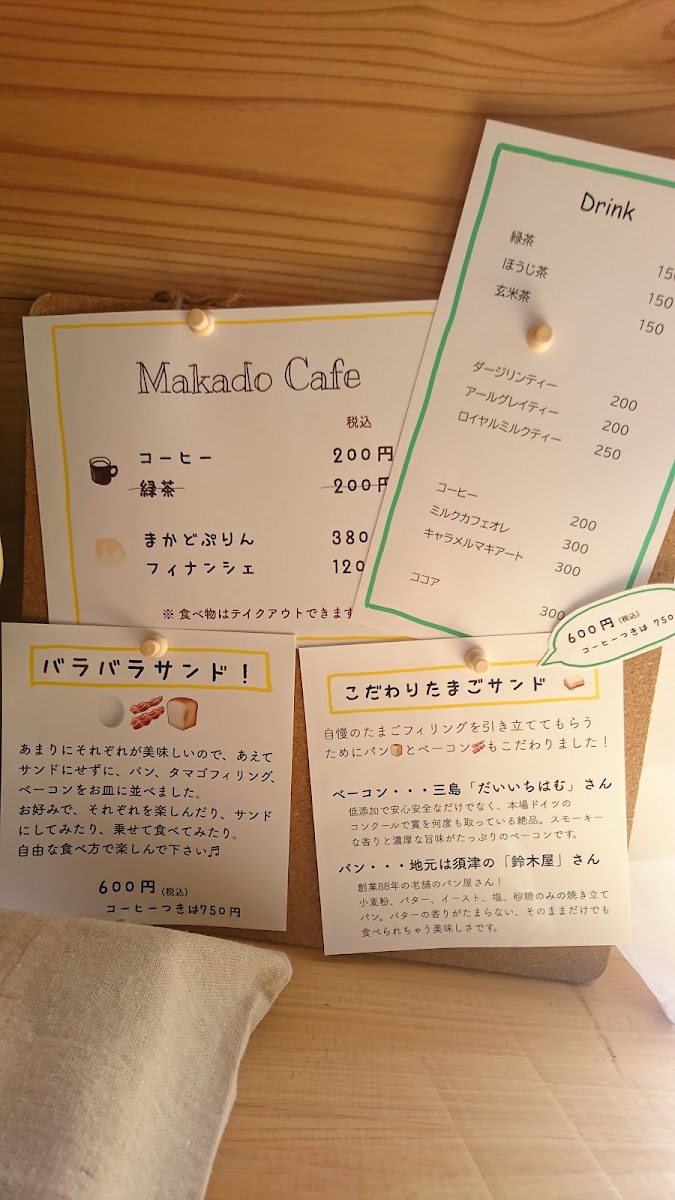 Makado Cafe
税込
コーヒー 200円
緑茶 200円
まかどぷりん 380
フィナンシェ 120
※ 食べ物はテイクアウトできます
Drink
緑茶 150
ほうじ茶 150
玄米茶 150
ダージリンティー 200
アールグレイティー 200
ロイヤルミルクティー 250
コーヒー 200
ミルクカフェオレ 300
キャラメルマキアート 300
ココア 300
バラバラサンド！
あまりにそれぞれが美味しいので、あえて
サンドにせずに、パン、タマゴフィリング、
ベーコンをお皿に並べました。
お好みで、それぞれを楽しんだり、サンド
にしてみたり、乗せて食べてみたり。
自由な食べ方で楽しんで下さい♬
600円（税込）
コーヒーつきは750円
600円（税込）
コーヒーつきは 750
こだわりたまごサンド
自慢のたまごフィリングを引き立ててもらう
ためにパンとベーコンもこだわりました！
ベーコン・・・三島「だいいちはむ」さん
低添加で安心安全なだけでなく、本場ドイツの
コンクールで賞を何度も取っている絶品。スモーキー
な香りと濃厚な旨味がたっぷりのベーコンです。
パン・・・地元は須津の「鈴木屋」さん
創業88年の老舗のパン屋さん！
小麦粉、バター、イースト、塩、砂糖のみの焼き立て
パン。バターの香りがたまらない、そのままだけでも
食べられちゃう美味しさです。